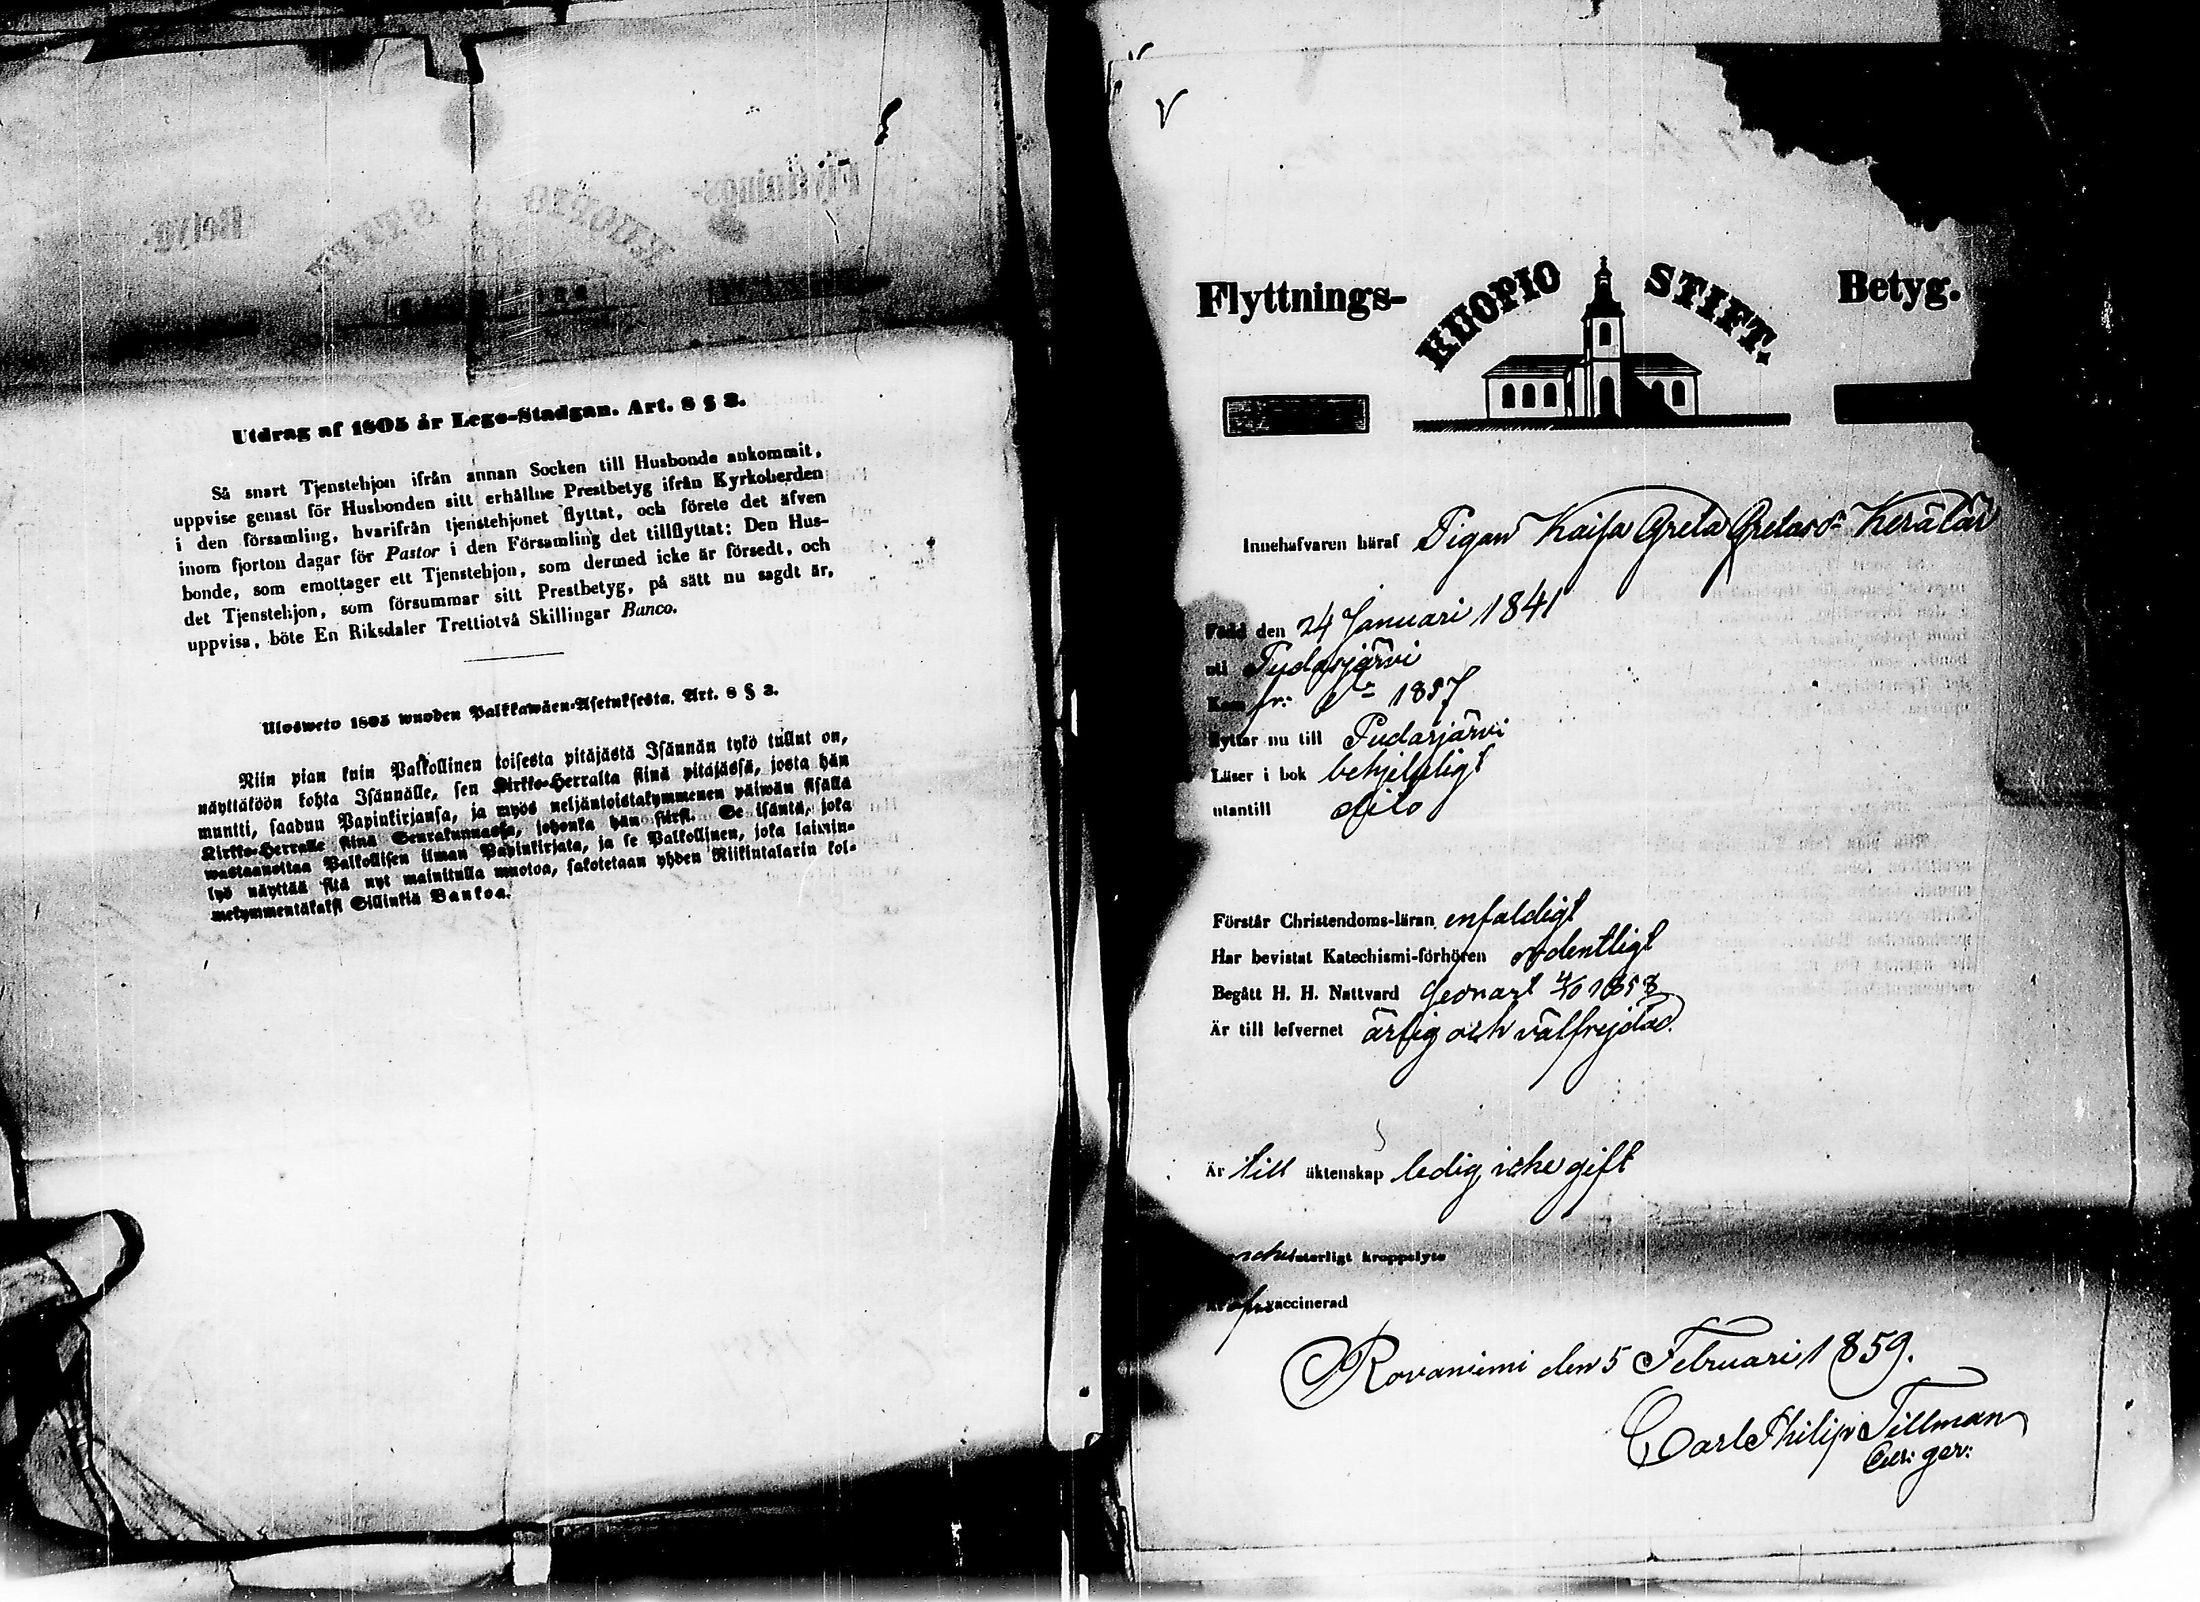 Utdrag af 1805 år Lego-Stadgan. Art. 8 § 3.
Så snart Tjenstehjon ifrån annan Socken till Husbonde ankommit,
uppvise genast för Husbonden sitt erhållne Prestbetyg ifrån Kyrkoherden
i den församling, hvarifrån tjenstehjonet flyttat, och förete det äfven
inom fjorton dagar för Pastor i den Församling det tillflyttat: Den Hus-
bonde, som emottager ett Tjenstehjon, som dermed icke är försedt, och
det Tjenstehjon, som försummar sitt Prestbetyg, på sätt nu sagdt är,
uppvisa, böte En Riksdaler Trettiotvå Skillingar Banco.
Ulosweto 1805 wuoden Palkkawäen-Asetuksesta. Art. 8 § 3.
Niin pian kuin Palkollinen toisesta pitäjästä Isännän tykö tullut on,
näyttäköön kohta Isännälle, sen Kirkko-Herralta siinä pitäjässä, josta hän
muutti, saadun Papinkirjansa, ja myös neljäntoistakymmenen päiwän sisällä
Kirkko-Herralle siinä Seurakunnassa, johonka hän siirsi. Se isäntä, joka
wastaanottaa Palkollisen ilman Papinkirjata, ja se Palkollinen, joka laimin-
lyö näyttää sitä nyt mainitulla muotoa, sakotetaan yhden Riikintalarin kol-
mekymmentäkaksi Sillinkiä Bankoa.
Flyttnings- KUOPIO STIFT. Betyg.
Innehafvaren häraf Pigan Kaisa Greta Gretasdr Kerälär
Född den 24 Januari 1841
uti Pudasjärvi
Kom fr: do 1857
flyttar nu till Pudasjärvi
Läser i bok behjelpligt
utantill dito
Förstår Christendoms-läran enfaldigt
Har bevistat Katechismi-förhören ordentligt
Begått H. H. Nattvard 1858
Är till lefvernet ärlig och välfrejdad.
Är till äktenskap ledig, icke gift
kroppslyte
vaccinerad
Rovaniemi den 5 Februari 1859.
Carl Philip Tillman